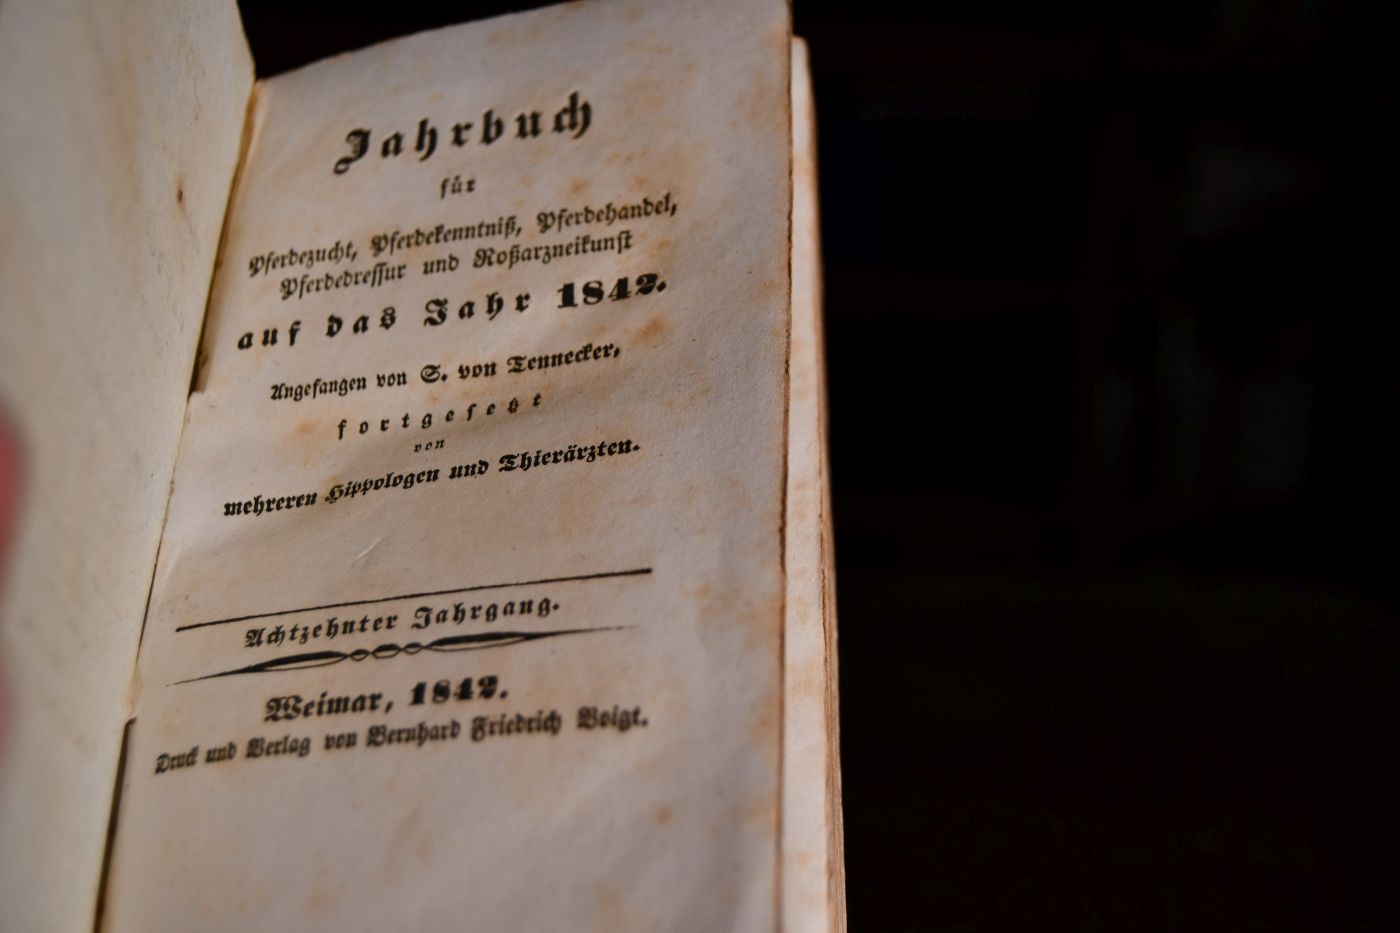 Jahrbuch
für
Pferdezucht, Pferdekenntniß, Pferdehandel,
Pferdedressur und Roßarzneikunst
auf das Jahr 1842.
Angefangen von S. von Tennecker,
fortgesetzt
von
mehreren Hippologen und Thierärzten.
Achtzehnter Jahrgang.
Weimar, 1842.
Druck und Verlag von Bernhard Friedrich Voigt.